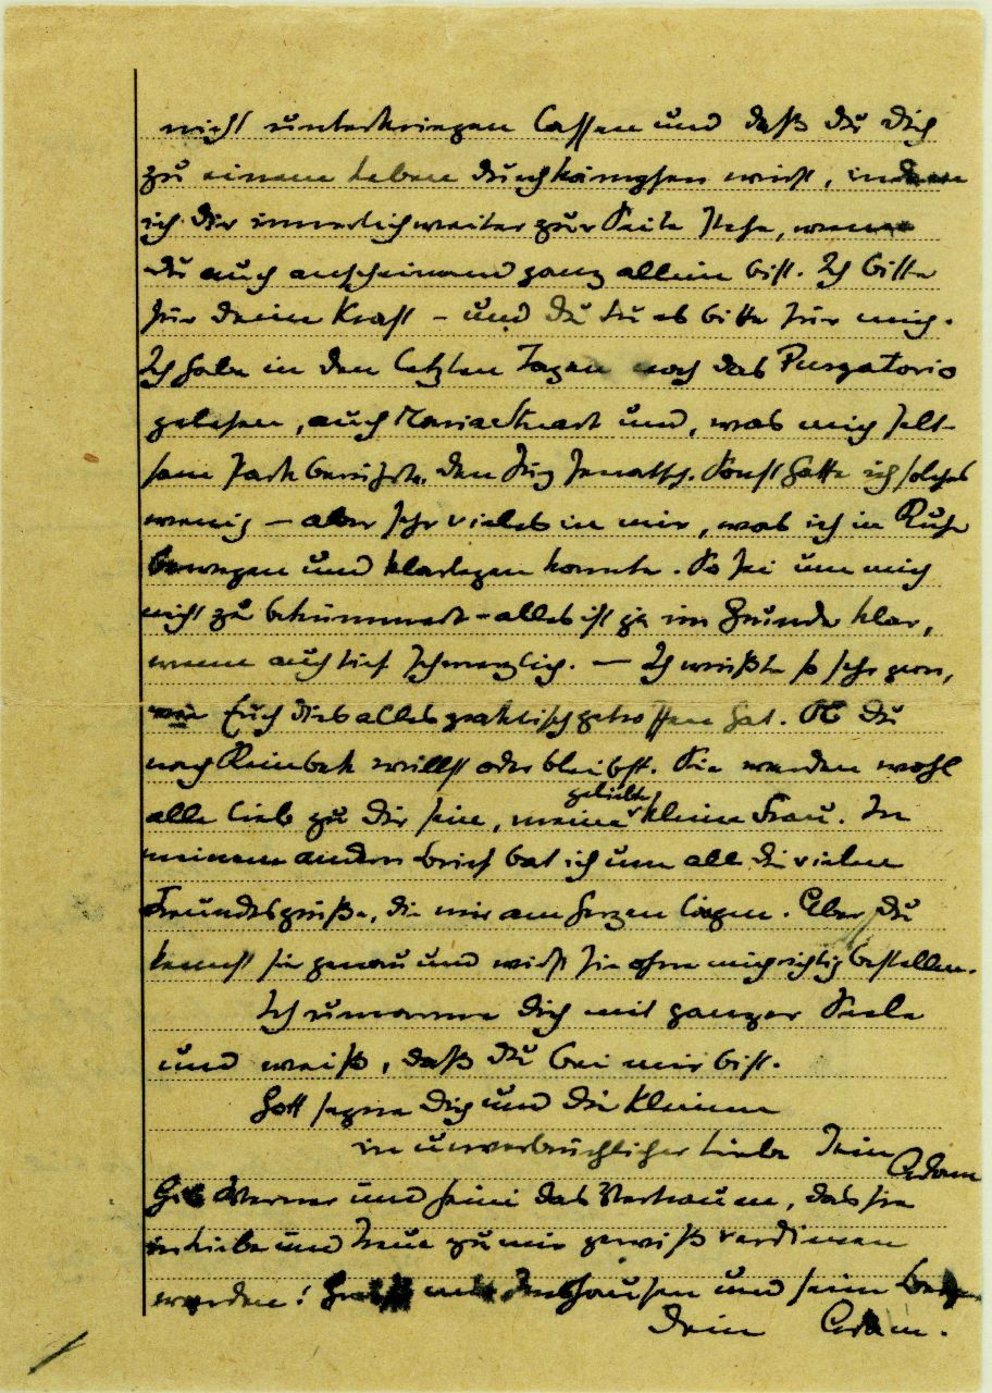 nicht unterkriegen lassen und daß du dich
zu einem Leben durchkämpfen wirst, indem
ich dir innerlich weiter zur Seite stehe, wenn
du auch anscheinend ganz allein bist. Ich bitte
für deine Kraft – und du tu es bitte für mich.
Ich habe in den letzten Tagen noch das Purgatorio
gelesen, auch Maria Stuart und, was mich selt-
sam stark berührte, den Jürg Jenatsch. Sonst hatte ich solches
wenig – aber sehr vieles in mir, was ich in Ruhe
bewegen und klarlegen konnte. So sei um mich
nicht zu bekümmert – alles ist ja im Grunde klar,
wenn auch tief schmerzlich. – Ich wüßte so sehr gern,
wie Euch dies alles praktisch getroffen hat. Ob du
nach Reinbek willst oder bleibst. Sie werden wohl
alle lieb zu dir sein, meine geliebte kleine Frau. In
meinem andern Brief bat ich um all die vielen
Freundesgrüße, die mir am Herzen liegen. Aber du
kennst sie genau und wirst sie ohne mich richtig bestellen.
Ich umarme dich mit ganzer Seele
und weiß, daß du bei mir bist.
Gott segne dich und die Kleinen
in unverbrüchlicher Liebe Dein
Adam
Gib Werner und Heini das Vertrauen, das sie
in Liebe und Treue zu mir gewiß verdienen
werden! Imshausen und seine
Dein Adam.